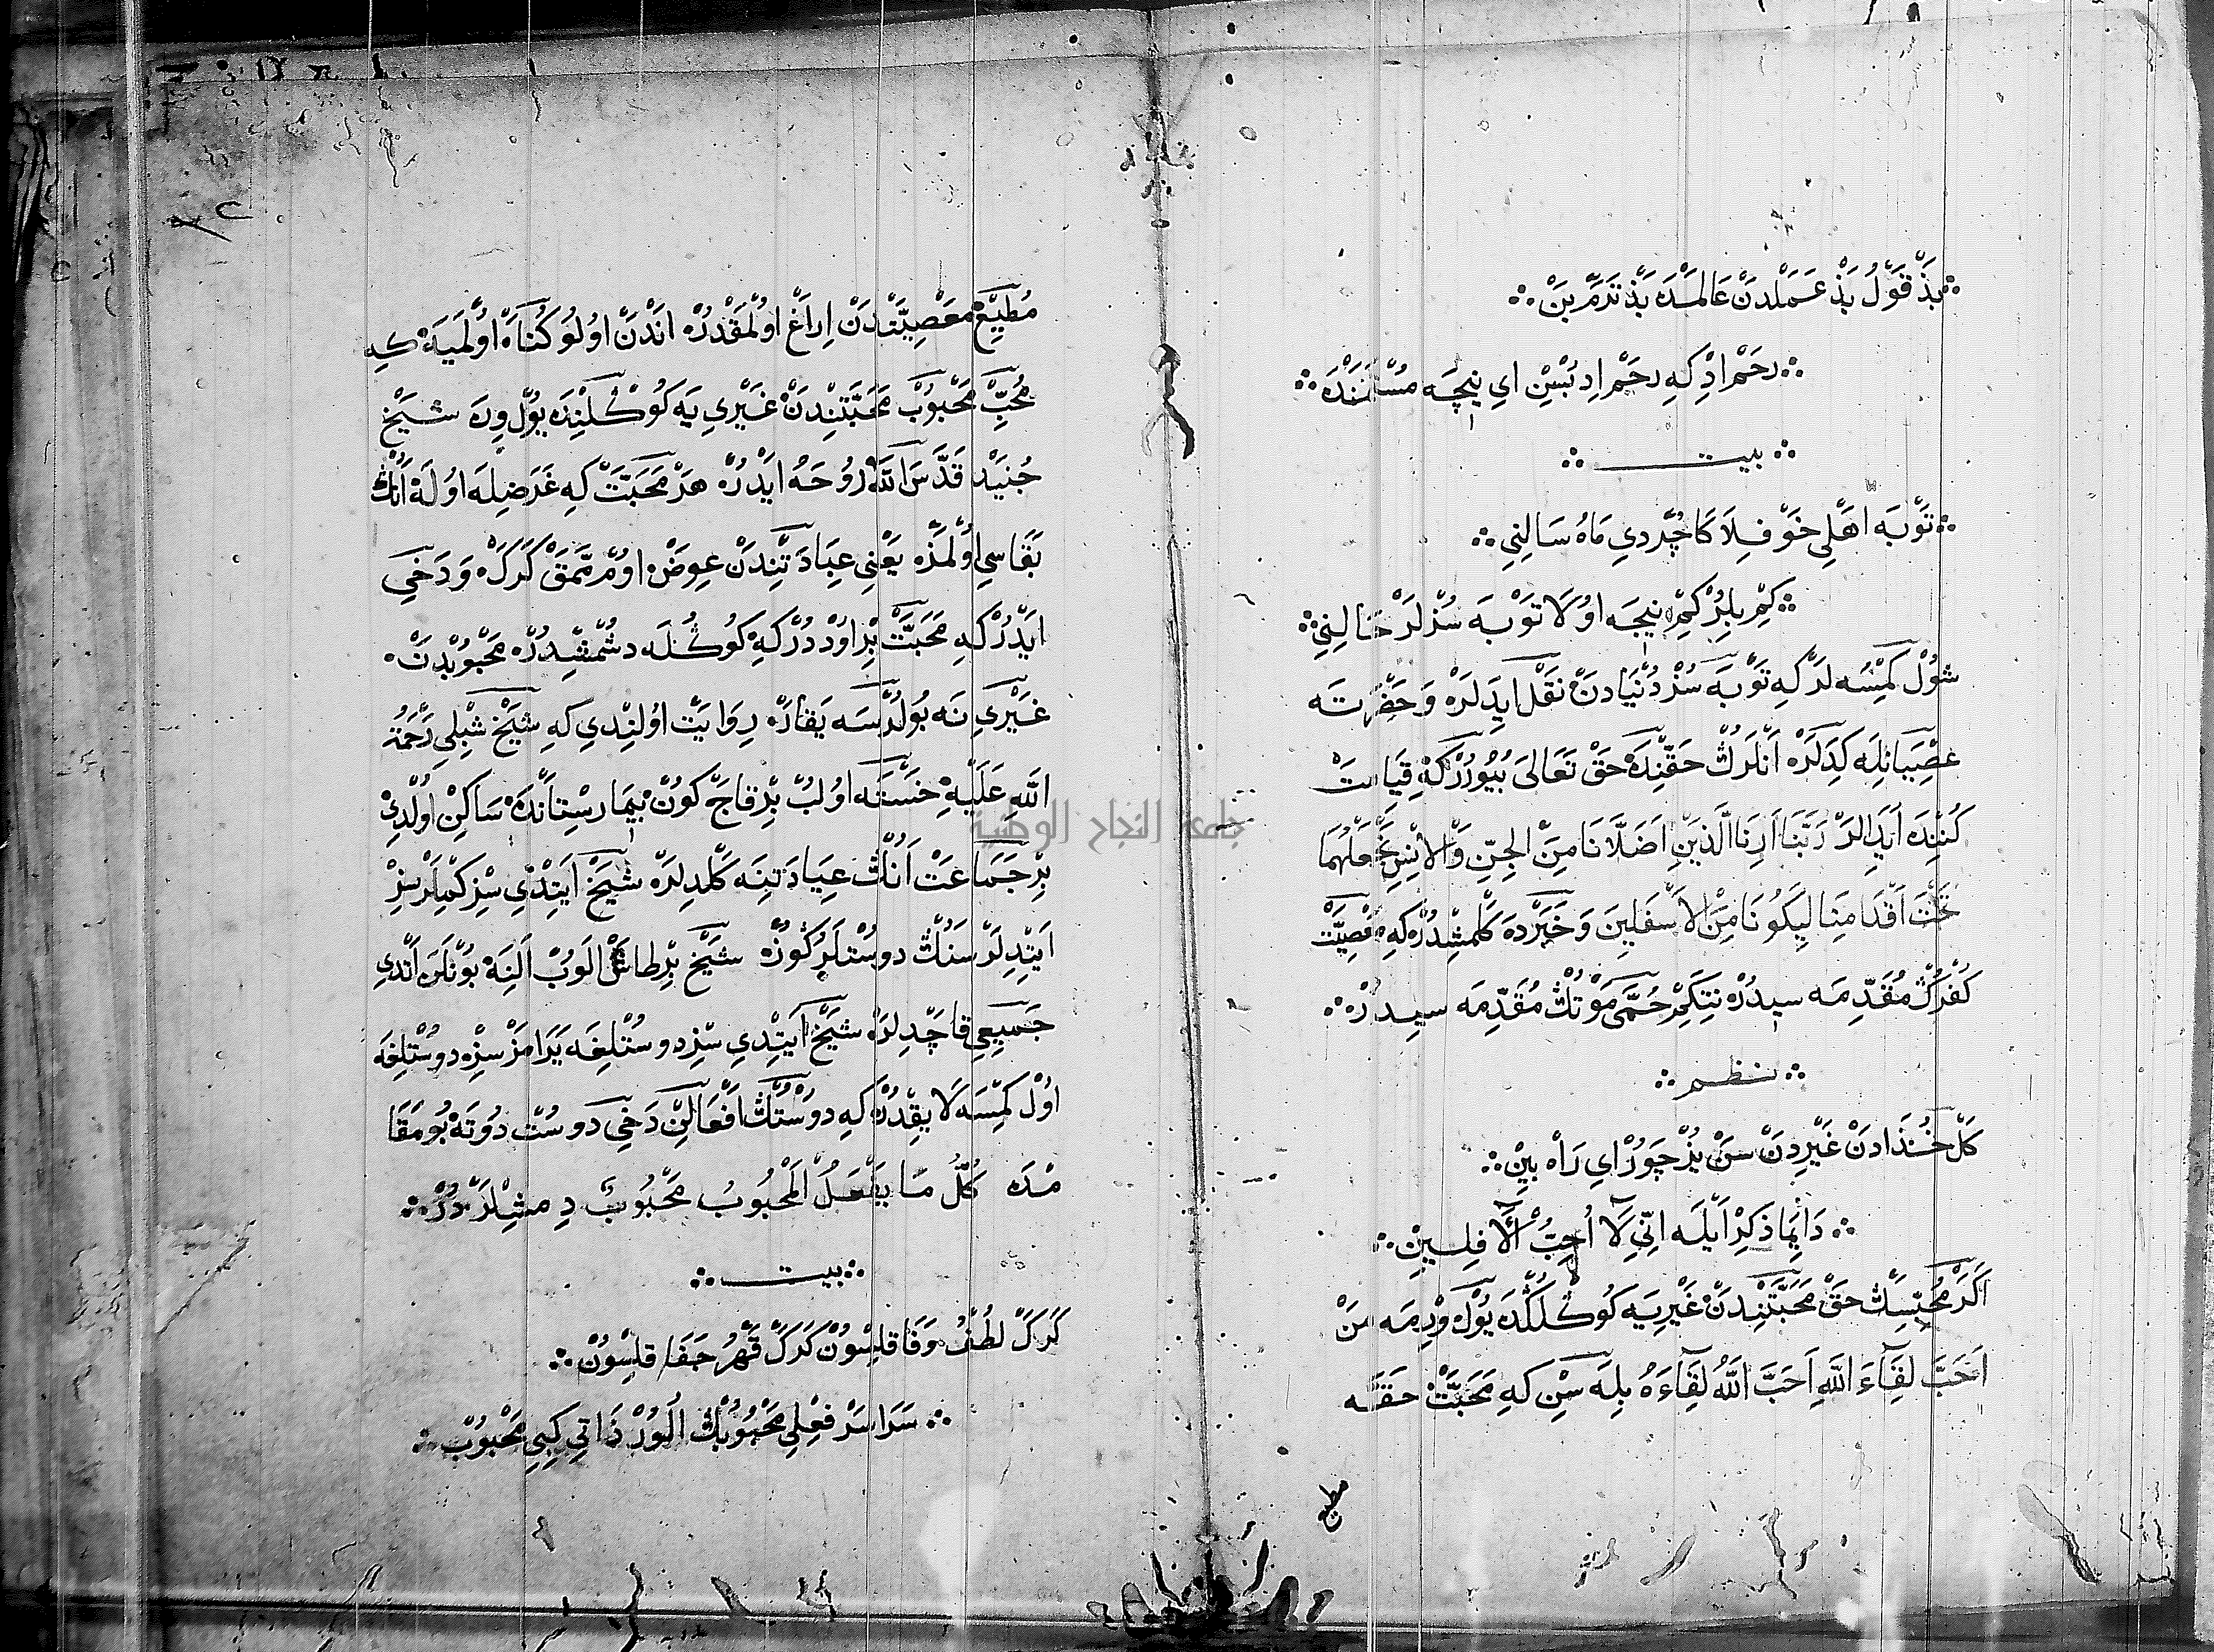 ∴ بَدْ قَوْلُ بَدْ عَمَلْدَنْ عَالَمْدَه بَدْتَرَمْ بَنْ ∴
∴ رحم اد که رحم اد بسن ای نیچه مستمنده ∴
∴ بیت ∴
∴ تَوْبَه اَهْلِی خَوْفِلَا كَاچُرْدِی مَاهُ سَالِنِی ∴
∴ كِمْ بِلِرْ كِمْ نِیجَه اوُلَا تَوْبَه سُزْلَرْ حَالِنِی ∴
شوُلْ كِمْسَه لَرْ كِه تَوْبَه سُزْ دُنْیَادَنْ نَقْل ایدَلَرْ وَ حَضْرَتَه
عِصْیَانِلَه كِدَلَرْ اَنْلَرُڭ حَقِّنْدَه حَقْ تَعَالَی بُیُورُرْ كِه قِیَامَتْ
كُنِنْدَه اَیَدَلَرْ رَبَّنَا اَرِنَا الَّذَیْنِ اَضَلَّانَا مِنَ الْجِنِّ وَالْاِنْسِ نَجْعَلْهُمَا
تَحْتَ اَقْدَامِنَا لِیَكُونَا مِنَ الْاَسْفَلِینَ وَ خَبَرْدَه كَلْمِشْدُرْ كِه مَعْصِیَتْ
كُفْرُڭ مُقَدِّمَه سیدُرْ نتَكِمْ حُمَّی مَوْتُڭ مُقَدِّمَه سیدُرْ ∴
∴ نظم ∴
كَلْ خُدَادَنْ غَیْرِدَنْ سَنْ یُزْ چَوُرْ اَی رَاهْ بِینْ ∴
∴ دَایِمَا ذِكْرْ اَیْلَه اِنِّی لَا اُحِبُّ الْآفِلِینْ ∴
اَكَرْ مُحِبْسِڭ حَقْ مَحَبَّتِنْدَنْ غَیْرِیَه كُوكْلُڭْدَه یُولْ وِرْمَه مَنْ
اَحَبَّ لِقَآءَ اللّٰهِ اَحَبَّ اللّٰهُ لِقَآءَهُ بِلَه سِنْ كِه مَحَبَّتْ حَقَّه
مطیع
مُطِیعْ مَعْصِیَتْدَنْ اِرَاغْ اوُلْمَقْدُرْ اَنْدَنْ اوُلُو كُنَاهْ اوُلْمَیَه كِه
مُحِبّ مَحْبُوبْ مَحَبَّتِنْدَنْ غَیْرِی یَه كُوكْلِنْدَه یُولْ وِرَه شَیْخ
جُنَیْد قَدَّسَ اللّٰهُ رُوحَهُ ایدُرْ هَرْ مَحَبَّتْ كِه غَرَضِلَه اوُلَه اَنُڭ
بَقَاسِی اوُلْمَزْ یَعْنِی عِبَادَتِنْدَنْ عِوَضْ اوُمْمَمَقْ كَرَكْ وَ دَخِی
ایدُرْ كِه مَحَبَّتْ بِرْ اوُدْدُرْ كِه كُوكُلَه دُشْمِشْدُرْ مَحْبُوبْدَنْ
غَیْرِی نَه بُولُرْسَه یَقَارْ رِوَایَتْ اوُلِنْدِی كِه شَیْخ شِبْلِی رَحْمَةُ
اللّٰهِ عَلَیْهِ خَسْتَه اوُلُبْ بِرْقَاچْ كُونْ بِیمَارِسْتَانْدَه سَاكِنْ اوُلْدِی
بِرْ جَمَاعَتْ اَنُڭ عِیَادَتِنَه كَلْدِلَرْ شَیْخ اَیِتْدِی سِزْ كِمْلَرْسِزْ
اَیِتْدِلَرْ سَنُڭ دوُسْتلَرُكُوزْ شَیْخ بِرْ طَاشْ اَلُوبْ اَلِنَه بُونْلَرَه اَتْدِی
جَمِیعِی قَاچْدِلَرْ شَیْخ اَیِتْدِی سِزْ دوُسْتْلِغَه یَرَامَزْسِزْ دوُسْتْلِغَه
اوُلْ كِمْسَه لَایِقْدُرْ كِه دوُسْتُڭ اَفْعَالِنْ دَخِی دوُسْتْ دُوتَه بُو مَقَا
مْدَه كُلُّ مَا یَفْعَلُ الْمَحْبُوبُ مَحْبُوبٌ دِمِشْلَرْدُرْ ∴
∴ بیت ∴
كَرَكْ لُطْفُ وَفَا قِلْسُونْ كَرَكْ قَهْرُ جَفَا قِلْسُونْ ∴
∴ سَرَاسَرْ فِعْلِی مَحْبُوبُڭ اُلُورْ ذَاتِی كِبِی مَحْبُوبْ ∴
جامعة النجاح الوطنية